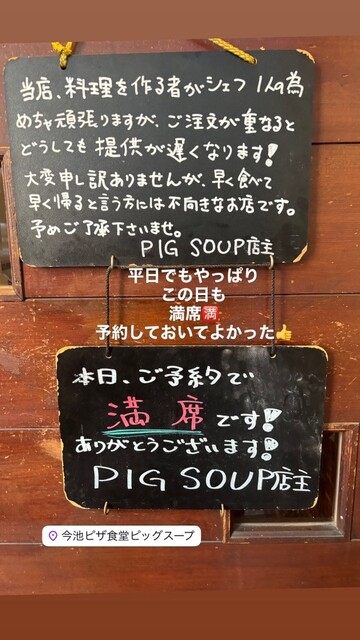 当店、料理を作る者がシェフ1人の為
めちゃ頑張りますが、ご注文が重なると
どうしても提供が遅くなります!
大変申し訳ありませんが、早く食べて
早く帰ると言う方には不向きなお店です。
予めご了承下さいませ。
PIG SOUP店主
平日でもやっぱり
この日も
満席🈵
予約しておいてよかった👍
本日、ご予約で
満席です!
ありがとうございます!
PIG SOUP店主
今池ピザ食堂ピッグスープ